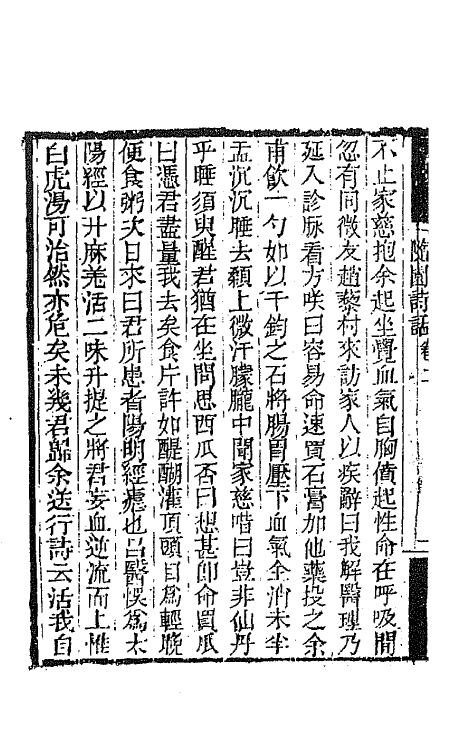 隨園詩話 卷二
不止家慈抱余起坐覺血氣自胸僨起性命在呼吸間
忽有同徵友趙藜村來訪家人以疾辭曰我解醫理乃
延入診脉看方咲曰容易命速買石膏加他藥投之余
甫飲一勺如以千鈞之石將腸胃壓下血氣全消未半
盂沉沉睡去顙上微汗朦朧中聞家慈唶曰豈非仙丹
乎睡須臾醒君猶在坐問思西瓜否曰想甚即命買瓜
曰憑君盡量我去矣食片許如醍醐灌頂頭目為輕晚
便食粥次日來曰君所患者陽明經瘧也呂醫悞為太
陽經以升麻羌活二味升提之將君妄血逆流而上惟
白虎湯可治然亦危矣未幾君歸余送行詩云活我自